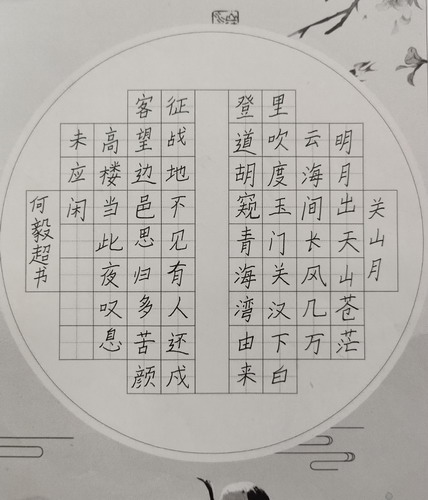 关山月
明月出天山苍茫
云海间长风几万
里吹度玉门关汉下白
登道胡窥青海湾由来
征战地不见有人还戍
客望边邑思归多苦颜
高楼当此夜叹息
未应闲
何毅超书